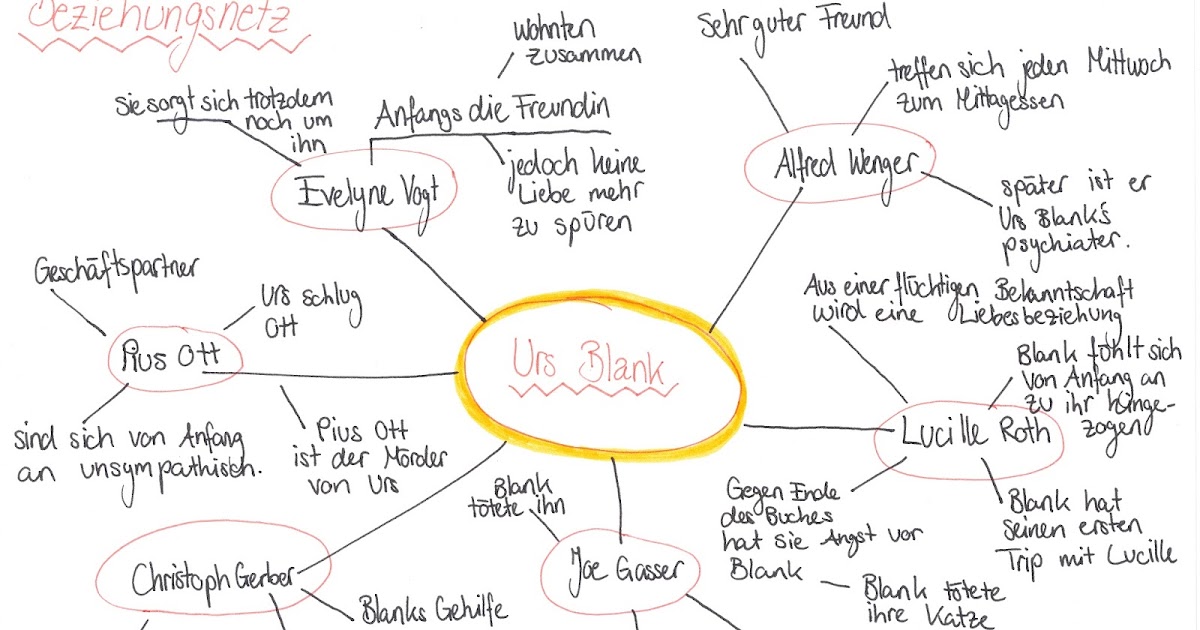 Beziehungsnetz
wohnten
zusammen
Sie sorgt sich trotzdem
noch um
ihn
Anfangs die Freundin
jedoch keine
Liebe mehr
zu spüren
Evelyne Vogt
Sehr guter Freund
treffen sich jeden Mittwoch
zum Mittagessen
Alfred Wenger
später ist er
Urs Blank's
psychiater.
Geschäftspartner
Urs schlug
Ott
Pius Ott
sind sich von Anfang
an unsympathisch.
Pius Ott
ist der Mörder
von Urs
Urs Blank
Aus einer flüchtigen Bekanntschaft
wird eine Liebesbeziehung
Blank fühlt sich
von Anfang an
zu ihr hinge-
zogen
Lucille Roth
Gegen Ende
des Buches
hat sie Angst vor
Blank
Blank hat
seinen ersten
Trip mit Lucille
Blank tötete
ihre Katze
Blank
tötete ihn
Joe Gasser
Christoph Gerber
Blanks Gehilfe